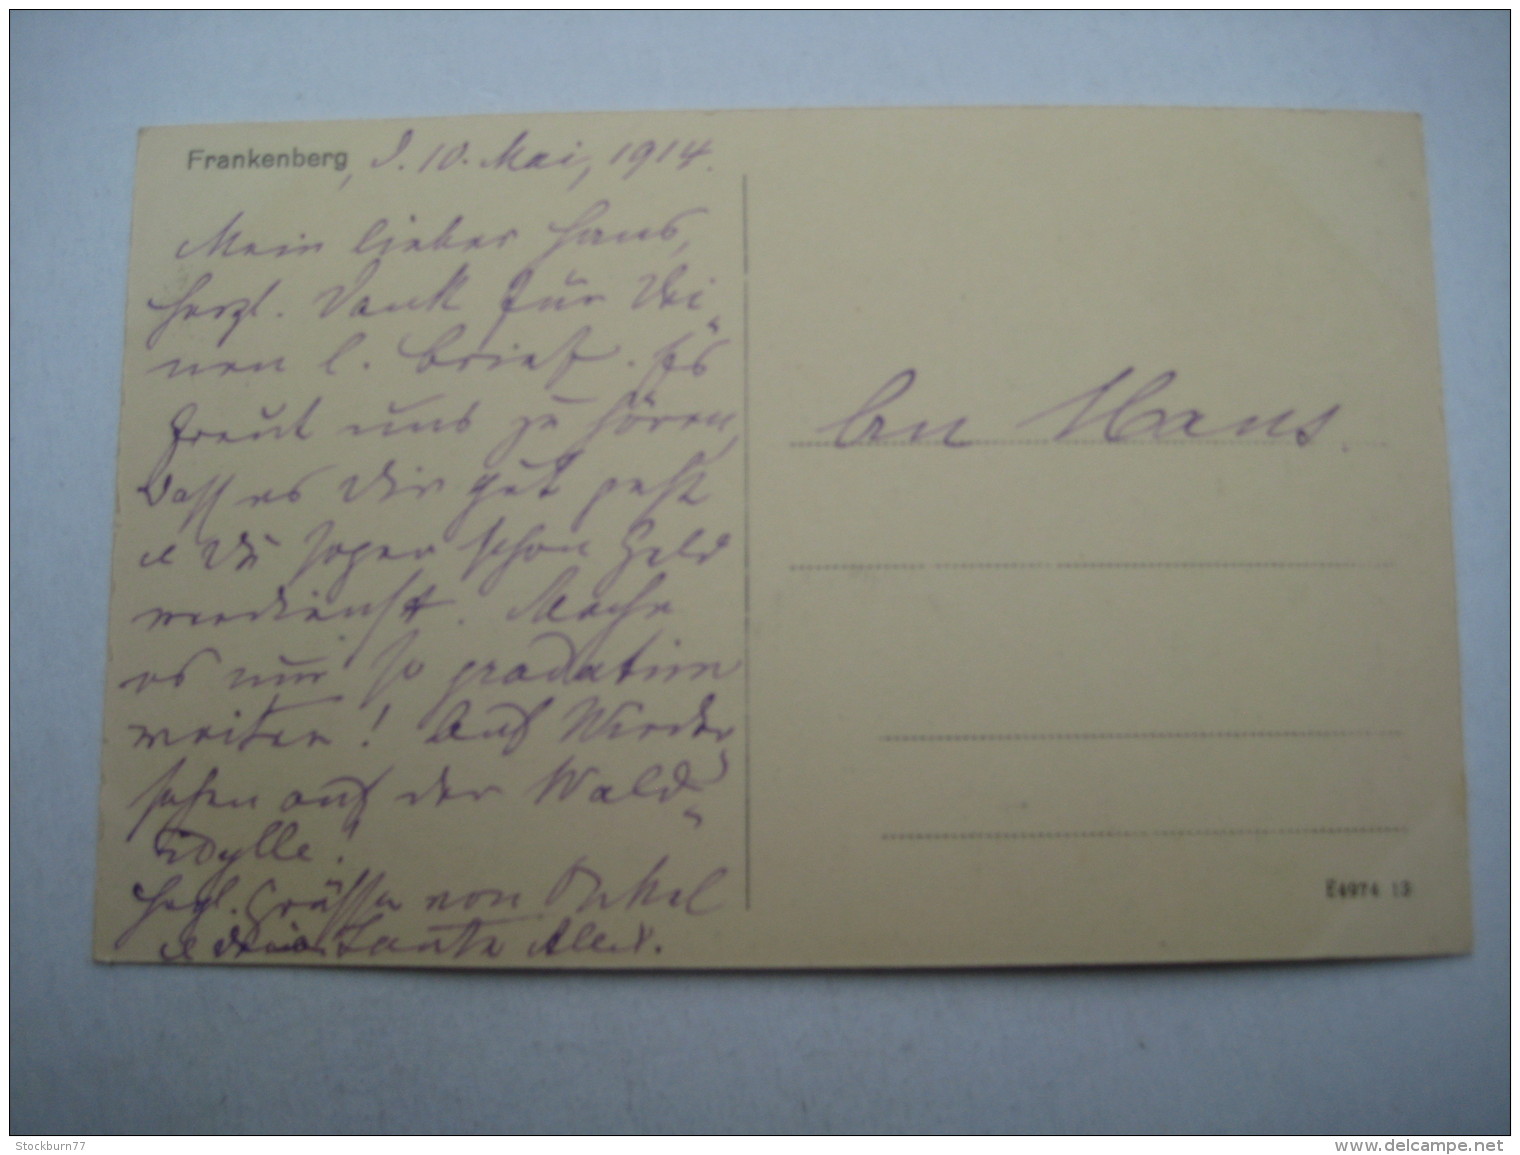 Frankenberg, d. 10. Mai, 1914.
Mein lieber Hans,
herzl. Dank für Dei-
nen l. Brief. Es
freut uns zu hören,
dass es Dir gut geht
u Du sogar schon Geld
verdienst. Mache
es nur so gradatim
weiter! Auf Wieder
sehen auf der Wald-
idylle!
Hrzl. Grüsse von Onkel
u Deine Tante Alex.
An Hans.
E4974 13
Stockburn77
www.delcampe.net